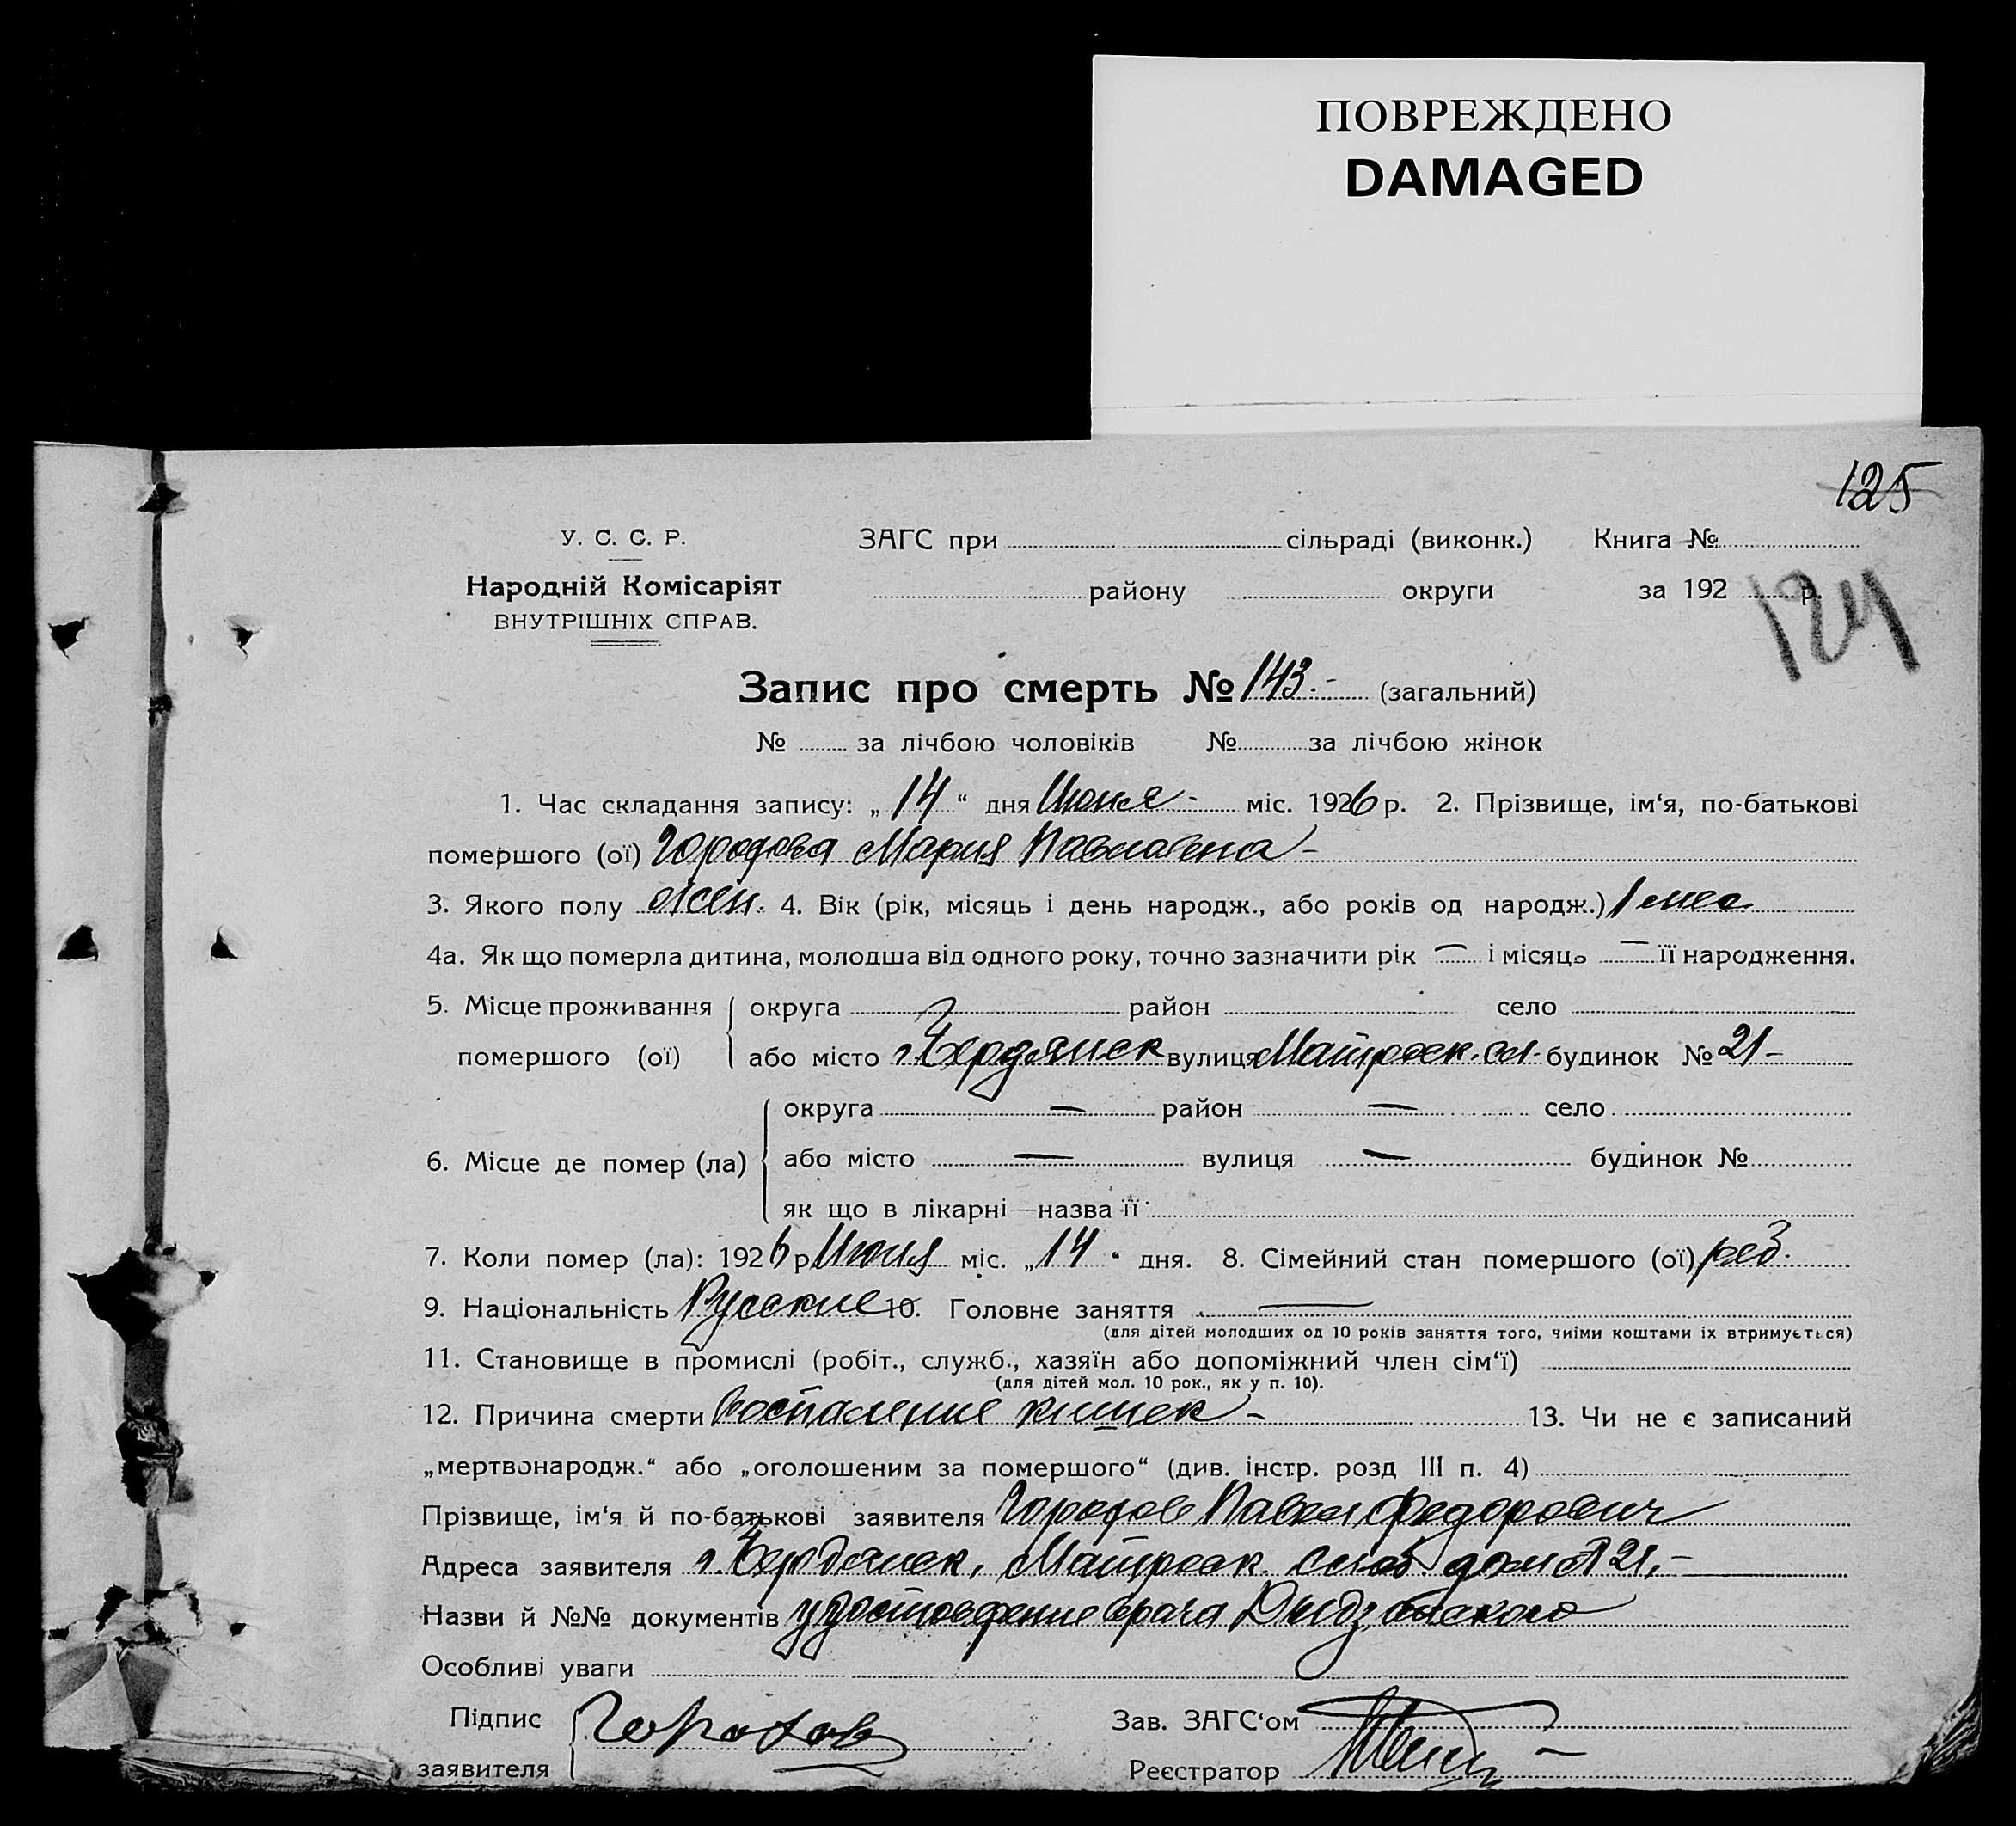 ПОВРЕЖДЕНО
DAMAGED
125
У. С. С. Р.
ЗАГС при сільраді (виконк.) Книга №
Народній Комісаріят
району округи за 192 р.
124
ВНУТРІШНІХ СПРАВ.
Запис про смерть № 143.- (загальний)
№ за лічбою чоловіків № за лічбою жінок
1. Час складання запису: „14“ дня Июня - міс. 1926 р. 2. Прізвище, ім‘я, по-батькові
помершого (ої) Городова Мария Павловна -
3. Якого полу жен. 4. Вік (рік, місяць і день народж., або років од народж.) 1 мес
4а. Як що померла дитина, молодша від одного року, точно зазначити рік — і місяць — її народження.
5. Місце проживання округа район село
помершого (ої) або місто г. Бердянск вулиця Матросск. сл. будинок № 21 -
округа — район — село
6. Місце де помер (ла) або місто — вулиця — будинок №
як що в лікарні — назва її
7. Коли помер (ла): 1926 р Июня міс. „14“ дня. 8. Сімейний стан помершого (ої) реб.
9. Національність Русские 10. Головне заняття —
(для дітей молодших од 10 років заняття того, чиїми коштами їх втримується)
11. Становище в промислі (робіт., служб., хазяїн або допоміжний член сім‘ї)
(для дітей мол. 10 рок., як у п. 10).
12. Причина смерти Воспаление кишек - 13. Чи не є записаний
„мертвонародж.“ або „оголошеним за помершого“ (див. інстр. розд III п. 4)
Прізвище, ім‘я й по-батькові заявителя Городов Павел Федорович
Адреса заявителя г. Бердянск, Матросск. слоб. дом № 21, -
Назви й №№ документів удостоверение врача
Особливі уваги
Підпис Городов Зав. ЗАГС‘ом
заявителя Реєстратор